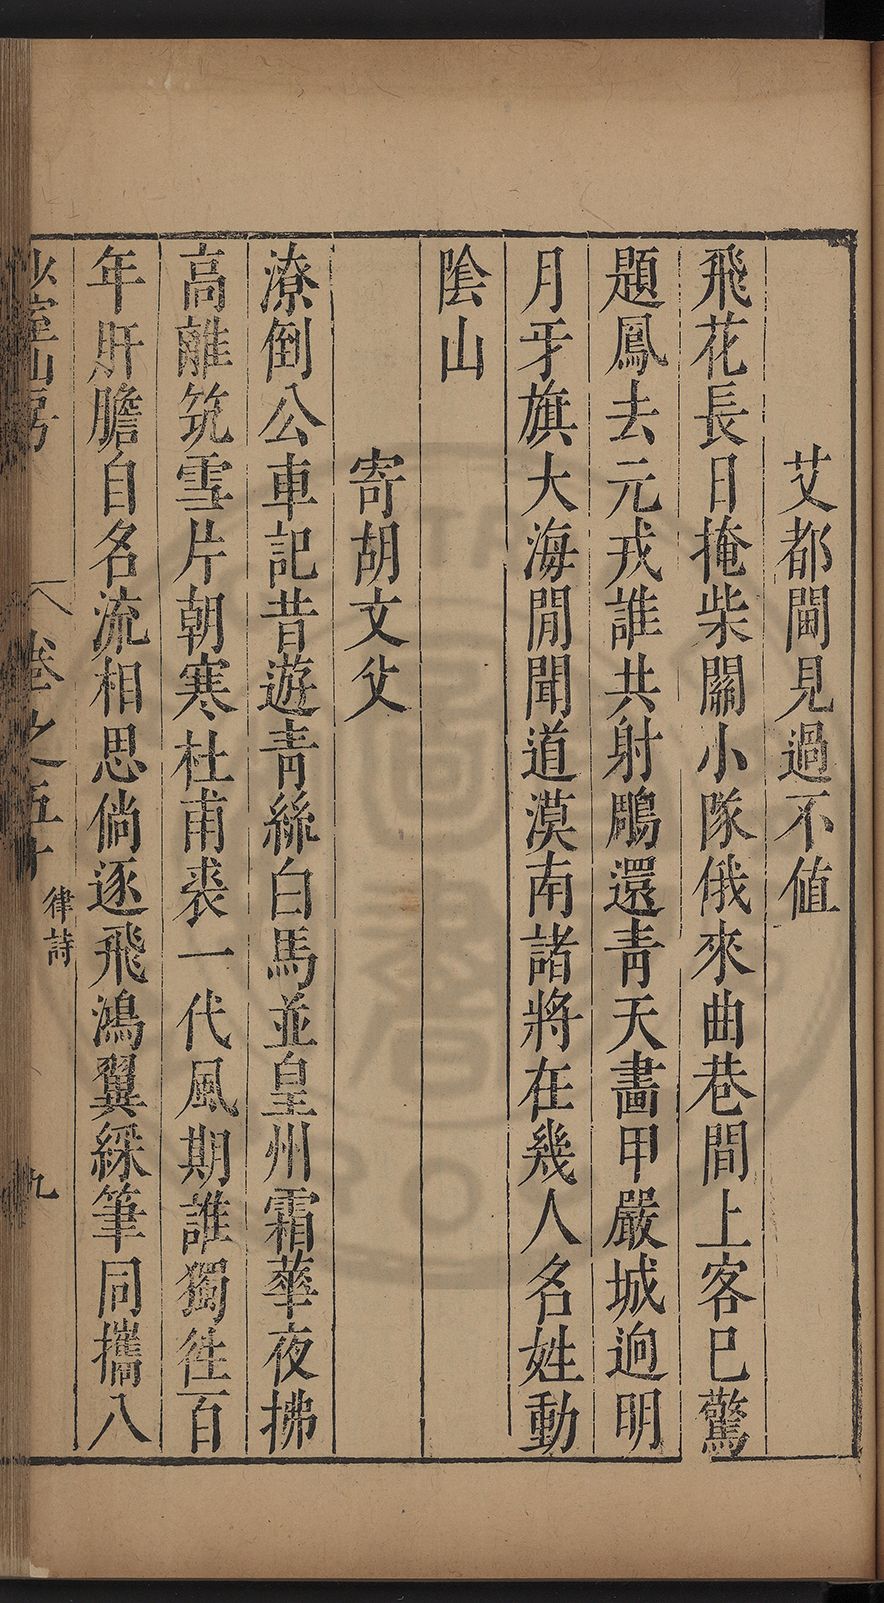 艾都閫見過不値
飛花長日掩柴關小隊俄來曲巷間上客已驚
題鳳去元戎誰共射鵰還青天畵甲嚴城逈明
月牙旗大海閒聞道漠南諸將在幾人名姓動
陰山
寄胡文父
潦倒公車記昔遊青絲白馬並皇州霜華夜拂
高離筑雪片朝寒杜甫裘一代風期誰獨徃百
年肝膽自名流相思倘逐飛鴻翼綵筆同攜八
山房
卷之五十
律詩
九